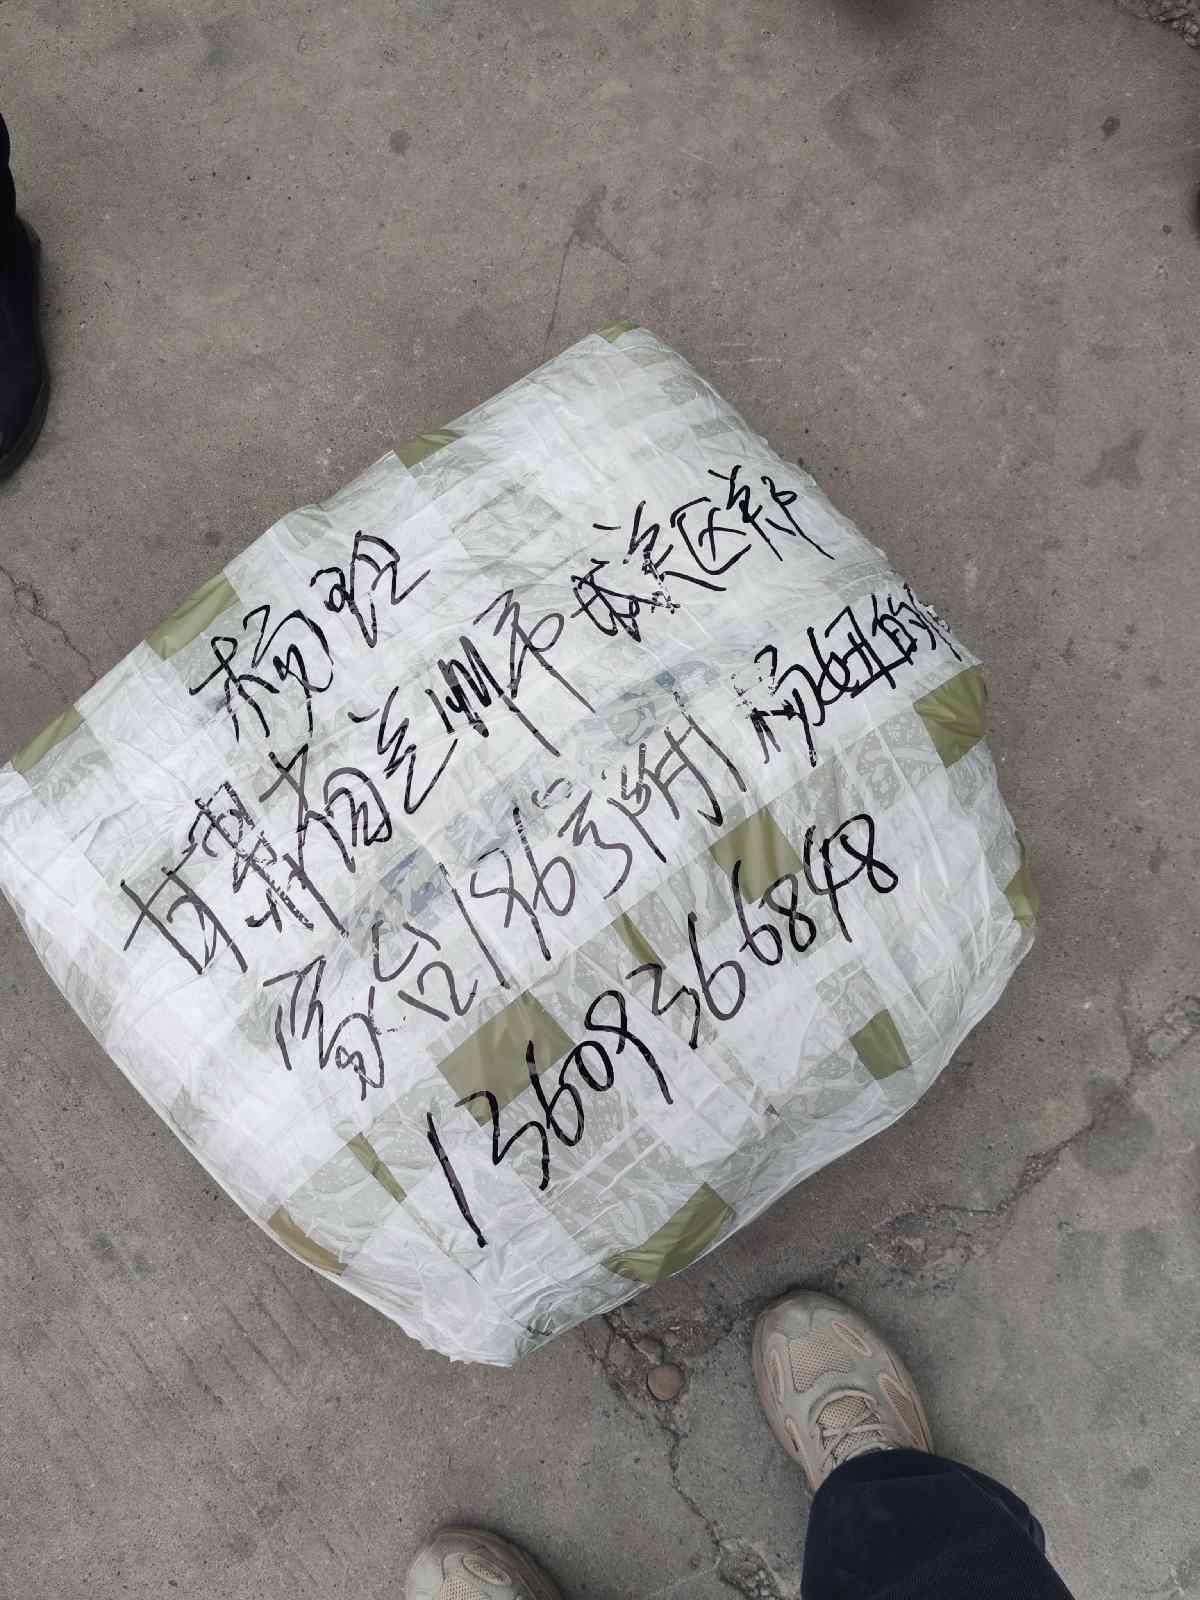 杨
甘肃省兰州市城关区郑
家台186号附1 杨妞的店
13609366848